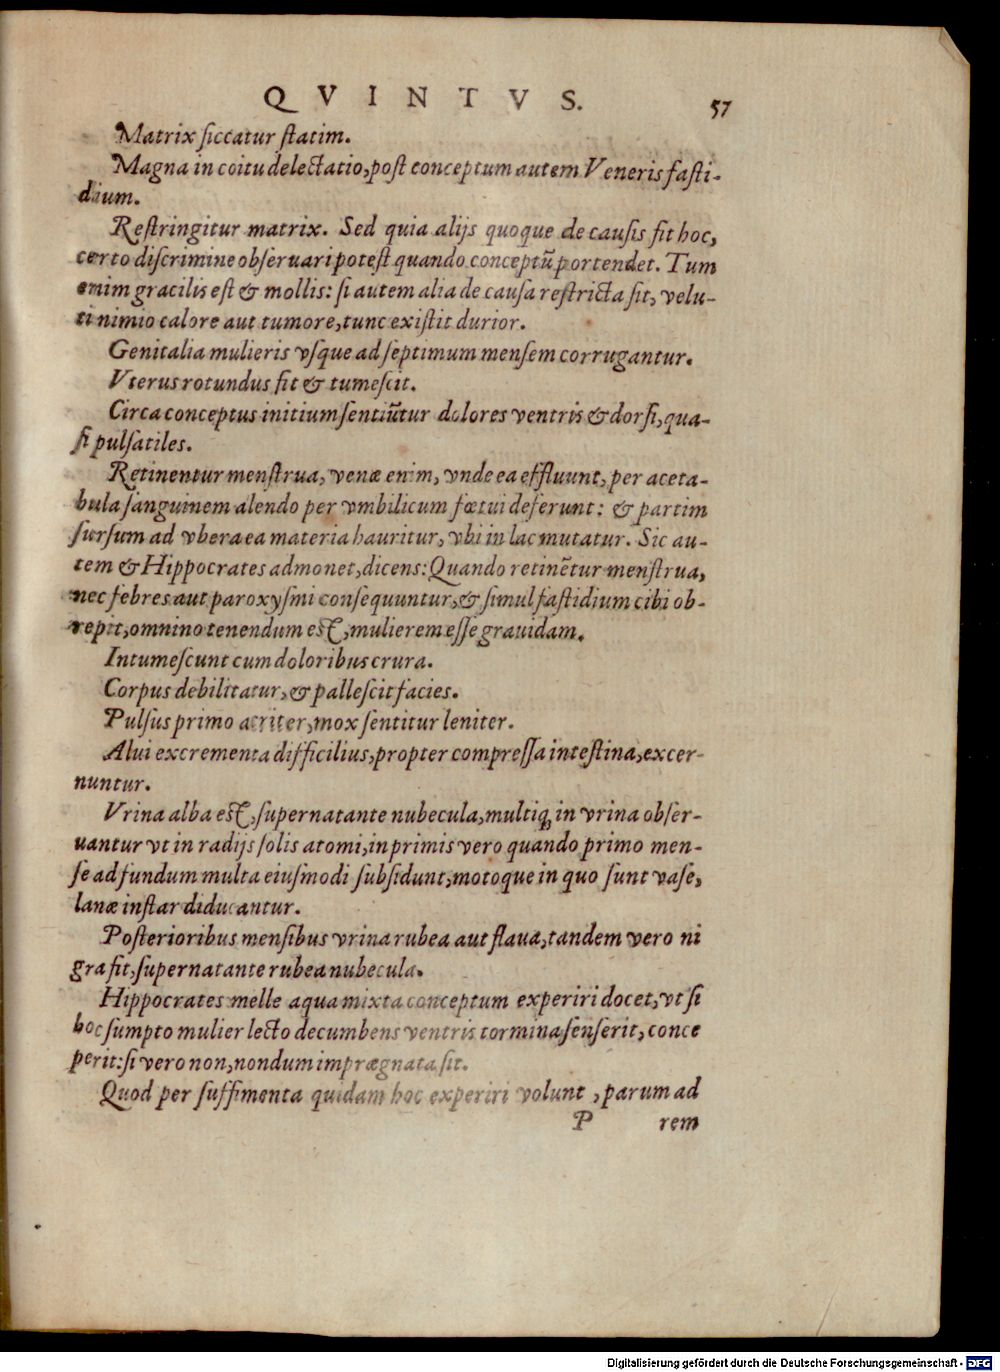 QVINTVS. 57
Matrix ſiccatur ſtatim.
Magna in coitu delectatio, poſt conceptum autem Veneris faſti-
dium.
Reſtringitur matrix. Sed quia alijs quoque de cauſis fit hoc,
certo diſcrimine obſeruari poteſt quando conceptũ portendet. Tum
enim gracilis eſt & mollis: ſi autem alia de cauſa reſtricta ſit, velu-
ti nimio calore aut tumore, tunc exiſtit durior.
Genitalia mulieris vſque ad ſeptimum menſem corrugantur.
Vterus rotundus fit & tumeſcit.
Circa conceptus initium ſentiũtur dolores ventris & dorſi, qua-
ſi pulſatiles.
Retinentur menſtrua, venæ enim, vnde ea effluunt, per aceta-
bula ſanguinem alendo per vmbilicum fœtui deferunt: & partim
ſurſum ad vbera ea materia hauritur, vbi in lac mutatur. Sic au-
tem & Hippocrates admonet, dicens: Quando retinẽtur menſtrua,
nec febres aut paroxyſmi conſequuntur, & ſimul faſtidium cibi ob-
repit, omnino tenendum eſt, mulierem eſſe grauidam.
Intumeſcunt cum doloribus crura.
Corpus debilitatur, & palleſcit facies.
Pulſus primo acriter, mox ſentitur leniter.
Alui excrementa difficilius, propter compreſſa inteſtina, excer-
nuntur.
Vrina alba eſt, ſupernatante nubecula, multiq; in vrina obſer-
uantur vt in radijs ſolis atomi, in primis vero quando primo men-
ſe ad fundum multa eiuſmodi ſubſidunt, motoque in quo ſunt vaſe,
lanæ inſtar diducantur.
Poſterioribus menſibus vrina rubea aut flaua, tandem vero ni
gra fit, ſupernatante rubea nubecula.
Hippocrates melle aqua mixta conceptum experiri docet, vt ſi
hoc ſumpto mulier lecto decumbens ventris tormina ſenſerit, conce
perit: ſi vero non, nondum imprægnata ſit.
Quod per ſuffimenta quidam hoc experiri volunt, parum ad
P rem
Digitalisierung gefördert durch die Deutsche Forschungsgemeinschaft - DFG